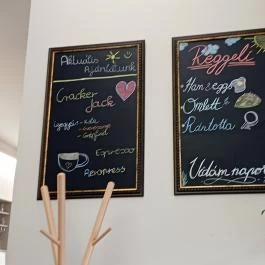 Aktuális
Ajánlatunk
Cracker
Jack
Espresso
Aeropress
Reggeli
Ham & eggs
Omlett
Rántotta
Vidám napot